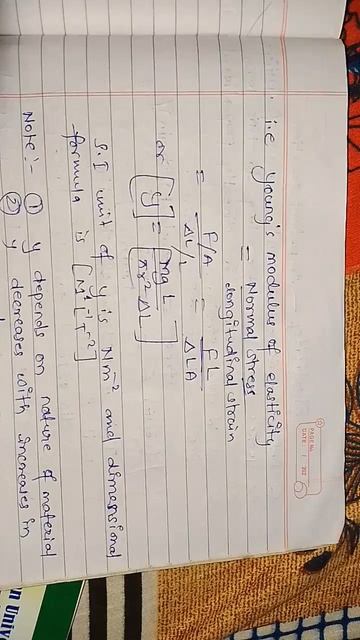 PAGE No.
DATE
i.e young's modulus of elasticity
= Normal stress / longitudinal strain
= F/A / ΔL/L = FL / ΔLA
or [Y = mgL / πr²ΔL]
S.I unit of Y is Nm⁻² and dimensional
formula is [M¹L⁻¹T⁻²]
Note:- ① Y depends on nature of material
② Y decreases with increases in
n Univ